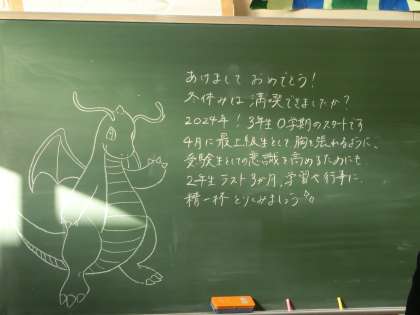 あけまして おめでとう！
冬休みは 満喫できましたか？
2024年！3年生0学期のスタートです
4月に最上級生として胸を張れるように、
受験生としての意識を高めるためにも
2年生ラスト3か月、学習や行事に
精一杯とりくみましょう